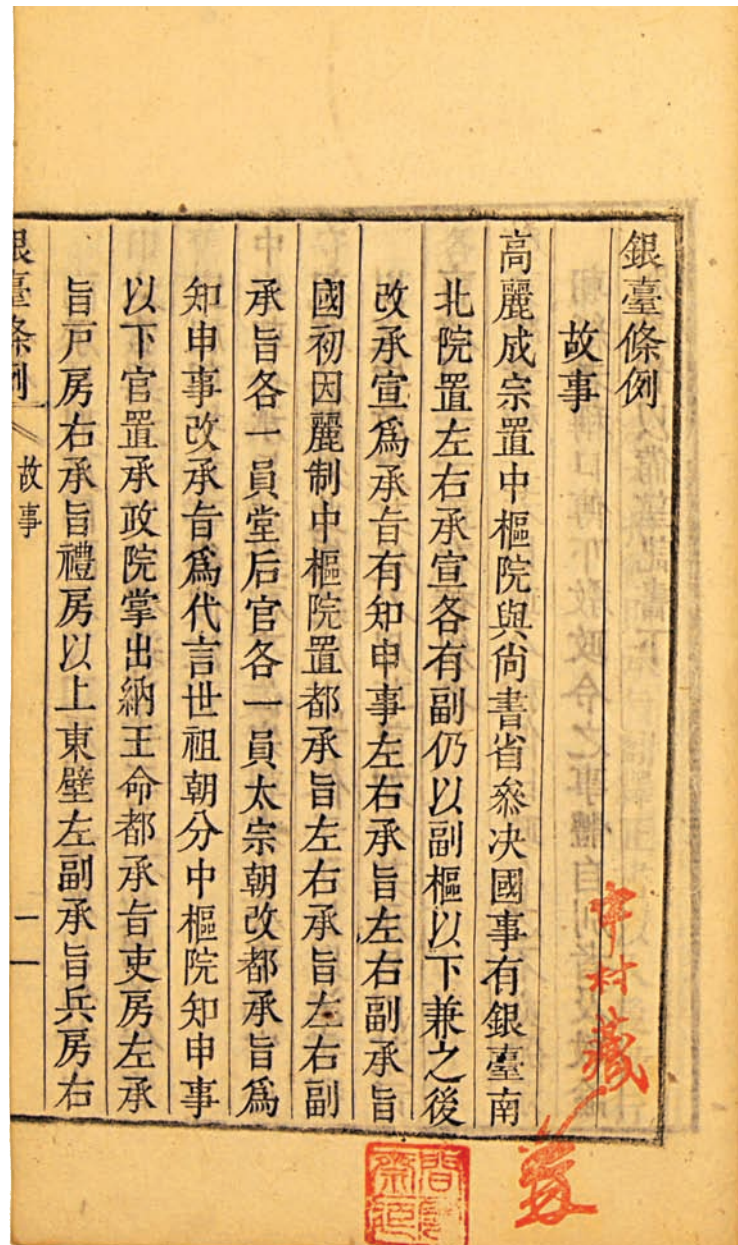 銀臺條例
故事
高麗成宗置中樞院與尙書省叅决國事有銀臺南
北院置左右承宣各有副仍以副樞以下兼之後
改承宣爲承旨有知申事左右承旨左右副承旨
國初因麗制中樞院置都承旨左右承旨左右副
承旨各一員堂后官各一員太宗朝改都承旨爲
知申事改承旨爲代言世祖朝分中樞院知申事
以下官置承政院掌出納王命都承旨吏房左承
旨戶房右承旨禮房以上東壁左副承旨兵房右
銀臺條例 故事 一
村藏